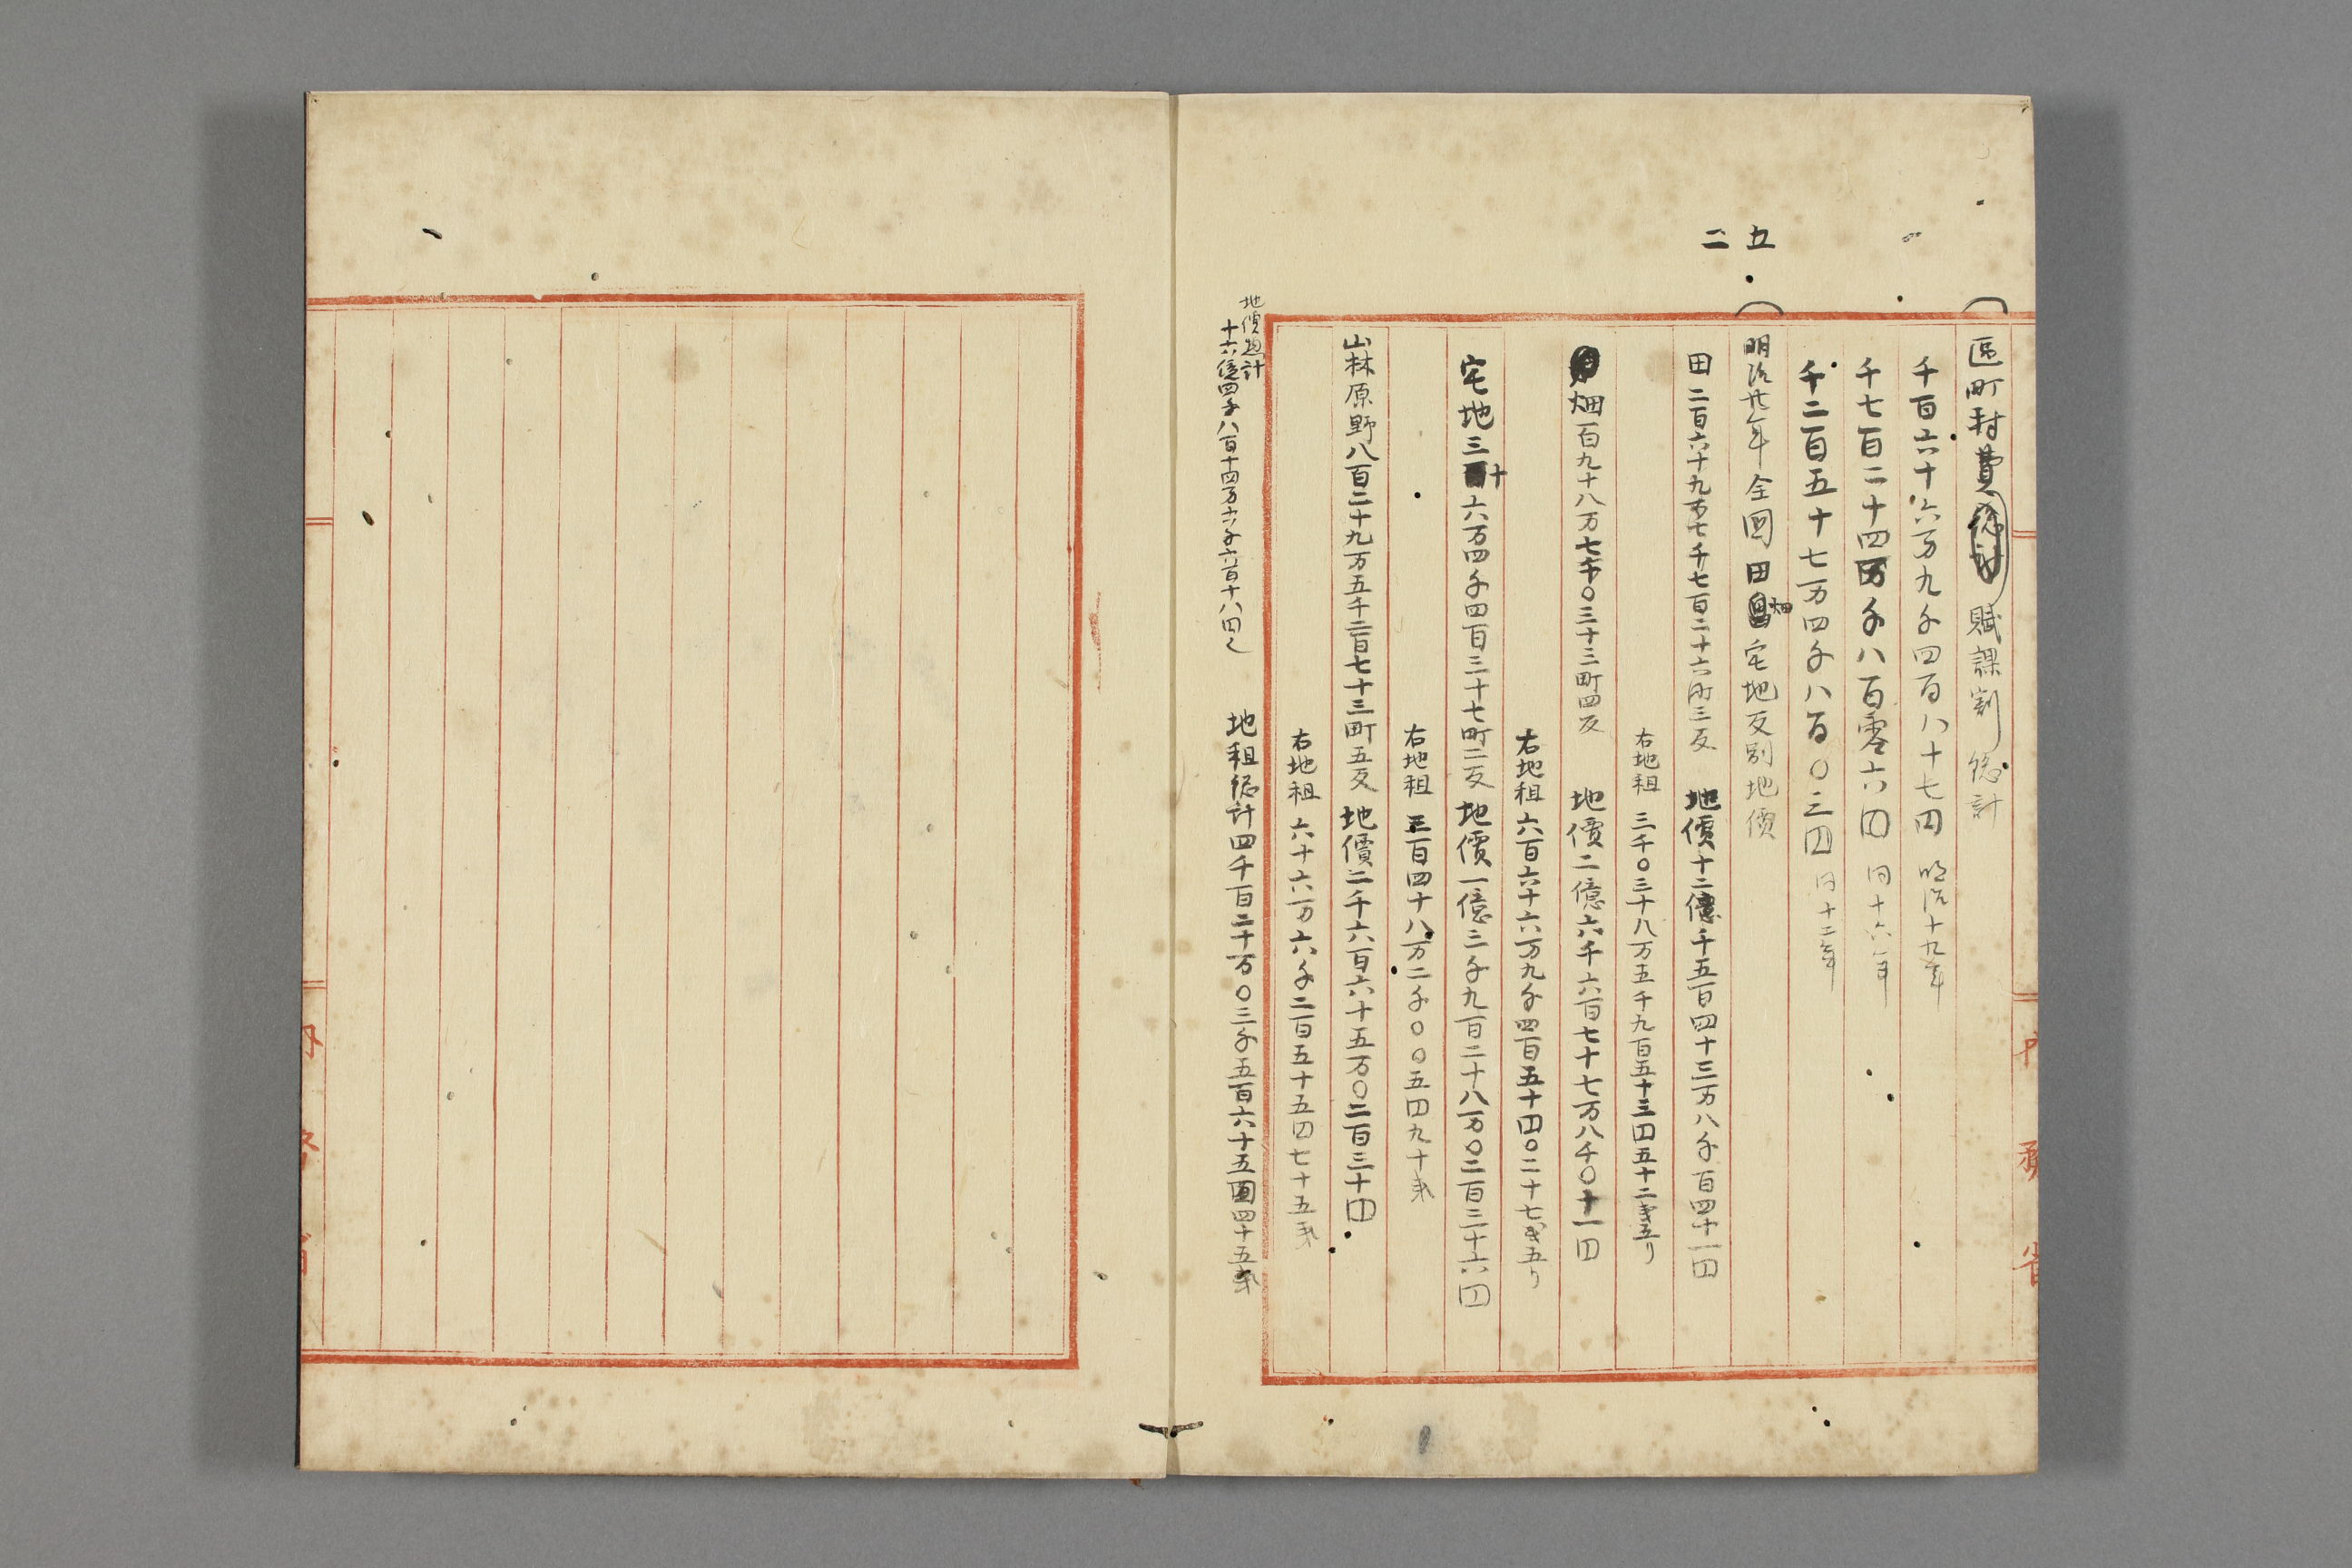 五二
區町村費賦課割総計
千百六十六万九千四百八十七円 明治十九年
千七百二十四万千八百零六円 同十六年
千二百五十七万四千八百〇三円 同十二年
明治廿年全国田畑宅地反別地價
田二百六十九万七千七百二十六町三反 地價十二億千五百四十三万八千百四十一円
右地租 三千〇三十八万五千九百五十三円五十二銭五り
畑百九十八万七千〇三十三町四反 地價二億六千六百七十七万八千〇十一円
右地租 六百六十六万九千四百五十円〇二十七銭五り
宅地三十六万四千四百三十七町二反 地價一億三千九百二十八万〇二百三十六円
右地租 三百四十八万二千〇〇五円九十銭
山林原野八百二十九万五千二百七十三町五反 地價二千六百六十五万〇二百三十円
右地租 六十六万六千二百五十五円七十五銭
地價惣計
十六億四千八百十四万六千六百十八円
地租総計四千百二十万〇三千五百六十五円四十五銭
内務省
内務省